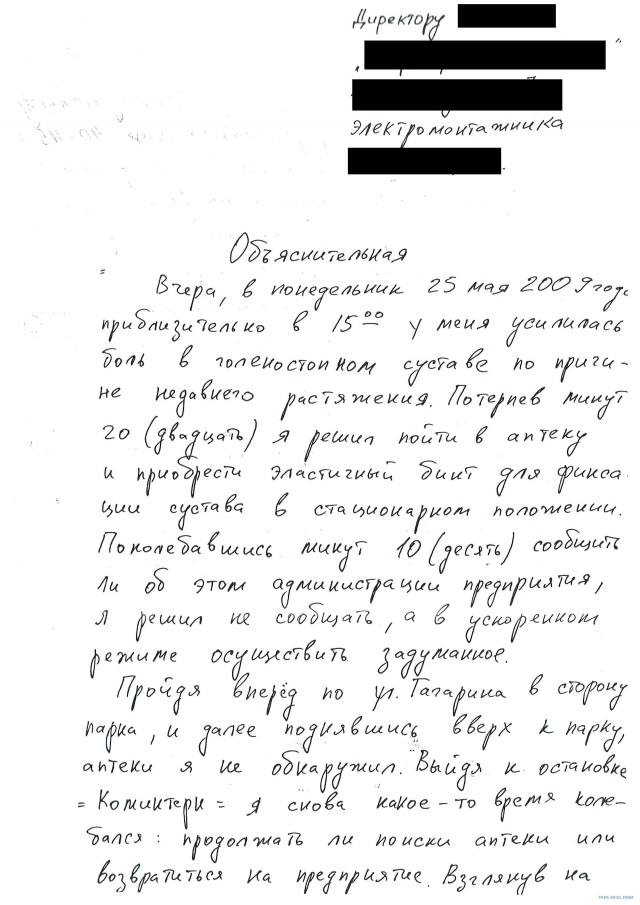 Директору
"
электромонтажника
Объяснительная
Вчера, в понедельник 25 мая 2009 года
приблизительно в 15⁰⁰ у меня усилилась
боль в голеностопном суставе по причи-
не недавнего растяжения. Потерпев минут
20 (двадцать) я решил пойти в аптеку
и приобрести эластичный бинт для фикса-
ции сустава в стационарном положении.
Поколебавшись минут 10 (десять) сообщить
ли об этом администрации предприятия,
я решил не сообщать, а в ускоренном
режиме осуществить задуманное.
Пройдя вперёд по ул. Гагарина в сторону
парка, и далее поднявшись вверх к парку,
аптеки я не обнаружил. Выйдя к остановке
=Коминтерн= я снова какое-то время коле-
бался: продолжать ли поиски аптеки или
возвратиться на предприятие. Взглянув на